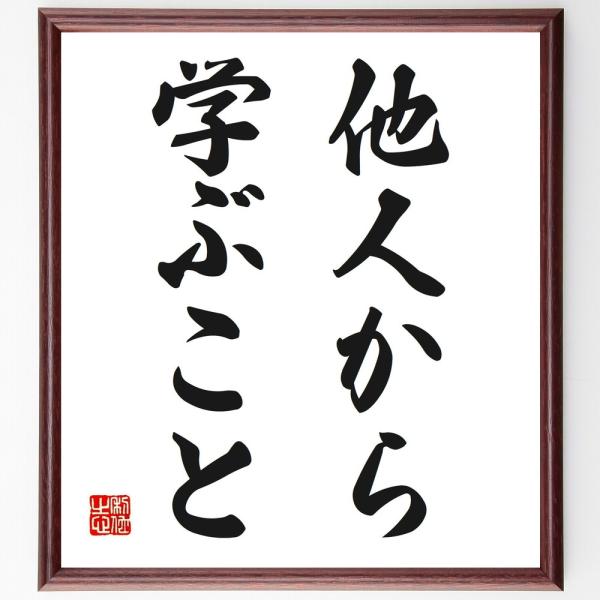 他人から
学ぶこと